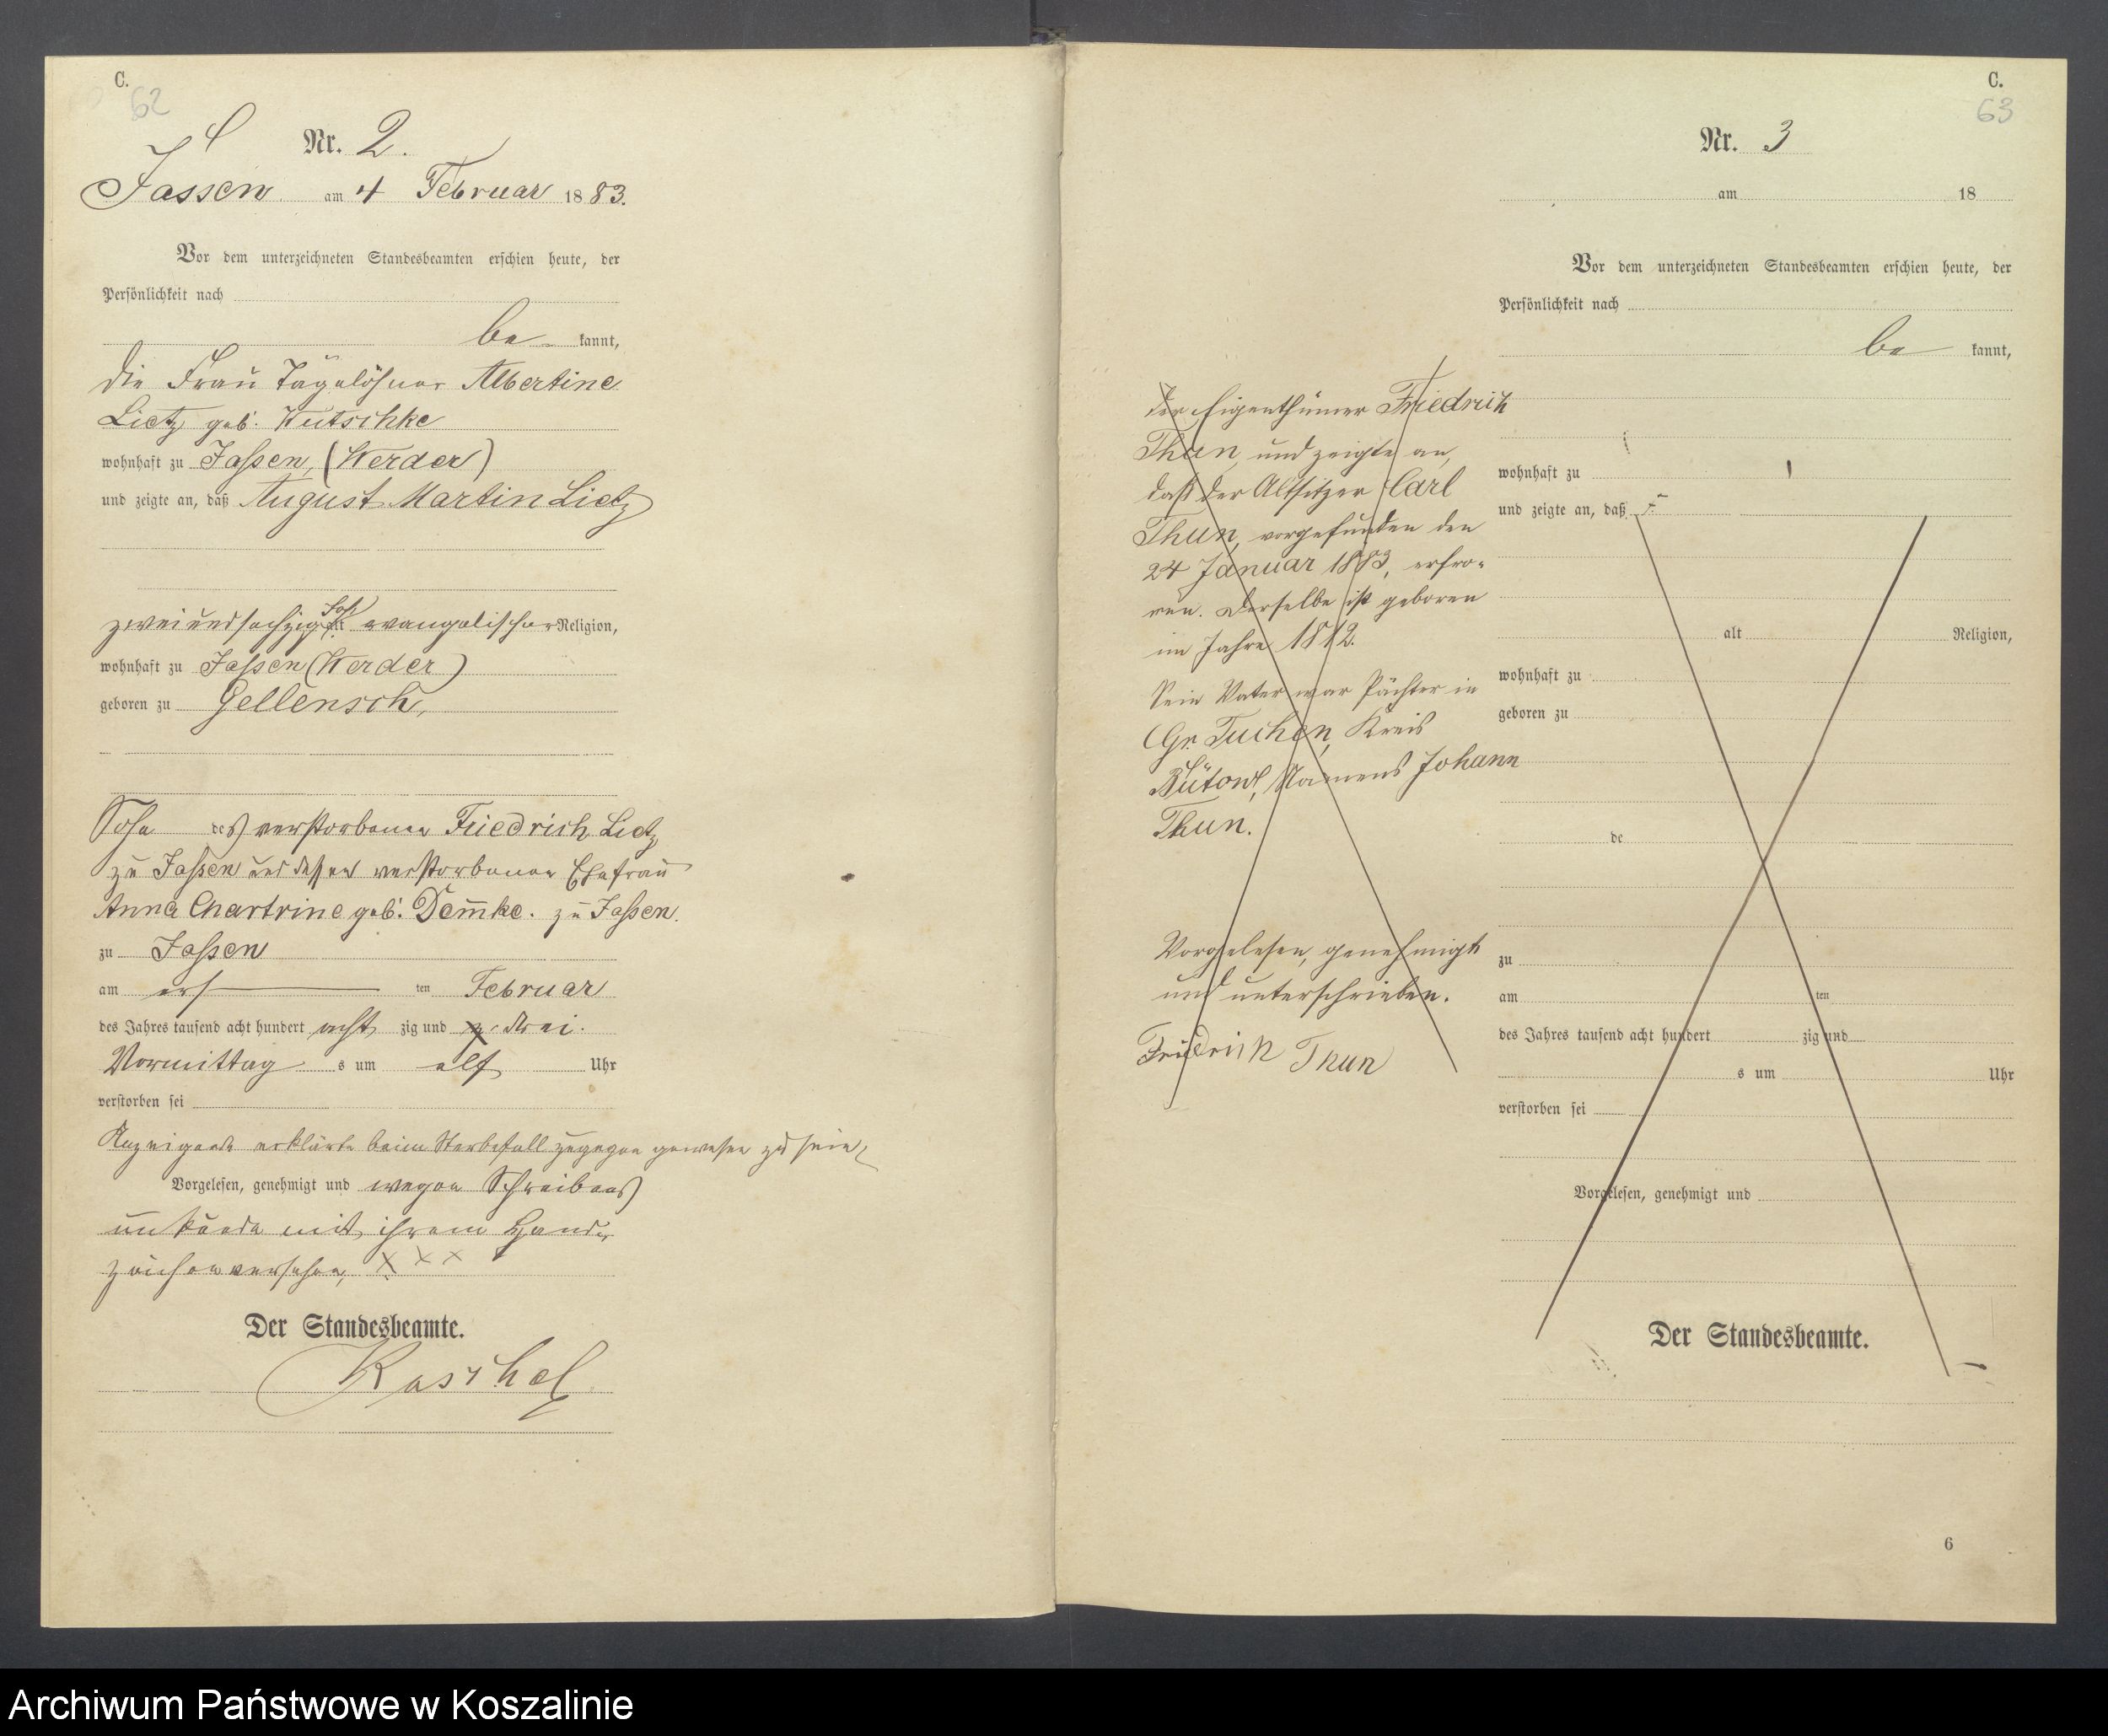 C.
62
Nr. 2.
Jassen am 4 Februar 1883.
Vor dem unterzeichneten Standesbeamten erschien heute, der
Persönlichkeit nach
be kannt,
die Frau Tagelöhner Albertine
Lietz geb. Kutschke
wohnhaft zu Jassen, (Werder)
und zeigte an, daß August Martin Lietz
zweiundsechzig Jahr alt evangelischer Religion,
wohnhaft zu Jassen (Werder)
geboren zu Gellensch,
Sohn des verstorbenen Friedrich Lietz
zu Jassen und dessen verstorbenen Ehefrau
Anna Chartrine geb. Demke. zu Jassen.
zu Jassen
am erst ten Februar
des Jahres tausend acht hundert acht zig und drei.
Vormittag s um elf Uhr
verstorben sei
Anzeigende erklärte beim Sterbefall zugegen gewesen zu sein,
Vorgelesen, genehmigt und wegen Schreibens
unkunde mit ihrem Hand
zeichen versehen, X X X
Der Standesbeamte.
Raschel
C.
63
Nr. 3
am 18
Vor dem unterzeichneten Standesbeamten erschien heute, der
Persönlichkeit nach
be kannt,
der Eigenthümer Friedrich
Thun, und zeigte an,
daß der Altsitzer Carl
Thun, vorgefunden den
24 Januar 1883, erfro-
ren. Derselbe ist geboren
im Jahre 1812.
Sein Vater war Pächter in
Gr. Tuchen, Kreis
Bütow, Namens Johann
Thun.
Vorgelesen, genehmigt
und unterschrieben.
Friedrich Thun
wohnhaft zu
und zeigte an, daß F.
alt Religion,
wohnhaft zu
geboren zu
de
zu
am ten
des Jahres tausend acht hundert zig und
s um Uhr
verstorben sei
Vorgelesen, genehmigt und
Der Standesbeamte.
6
Archiwum Państwowe w Koszalinie